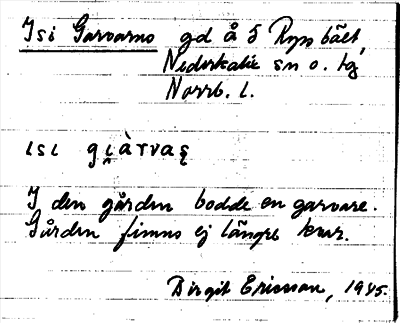 Isi Garvarns gd å 5 Ryssbält,
Nederkalix sn o. tg
Norrb. l.
ısı gi̯àrvaş
I den gården bodde en garvare.
Gården finns ej längre kvar.
Birgit Ericsson, 1985.